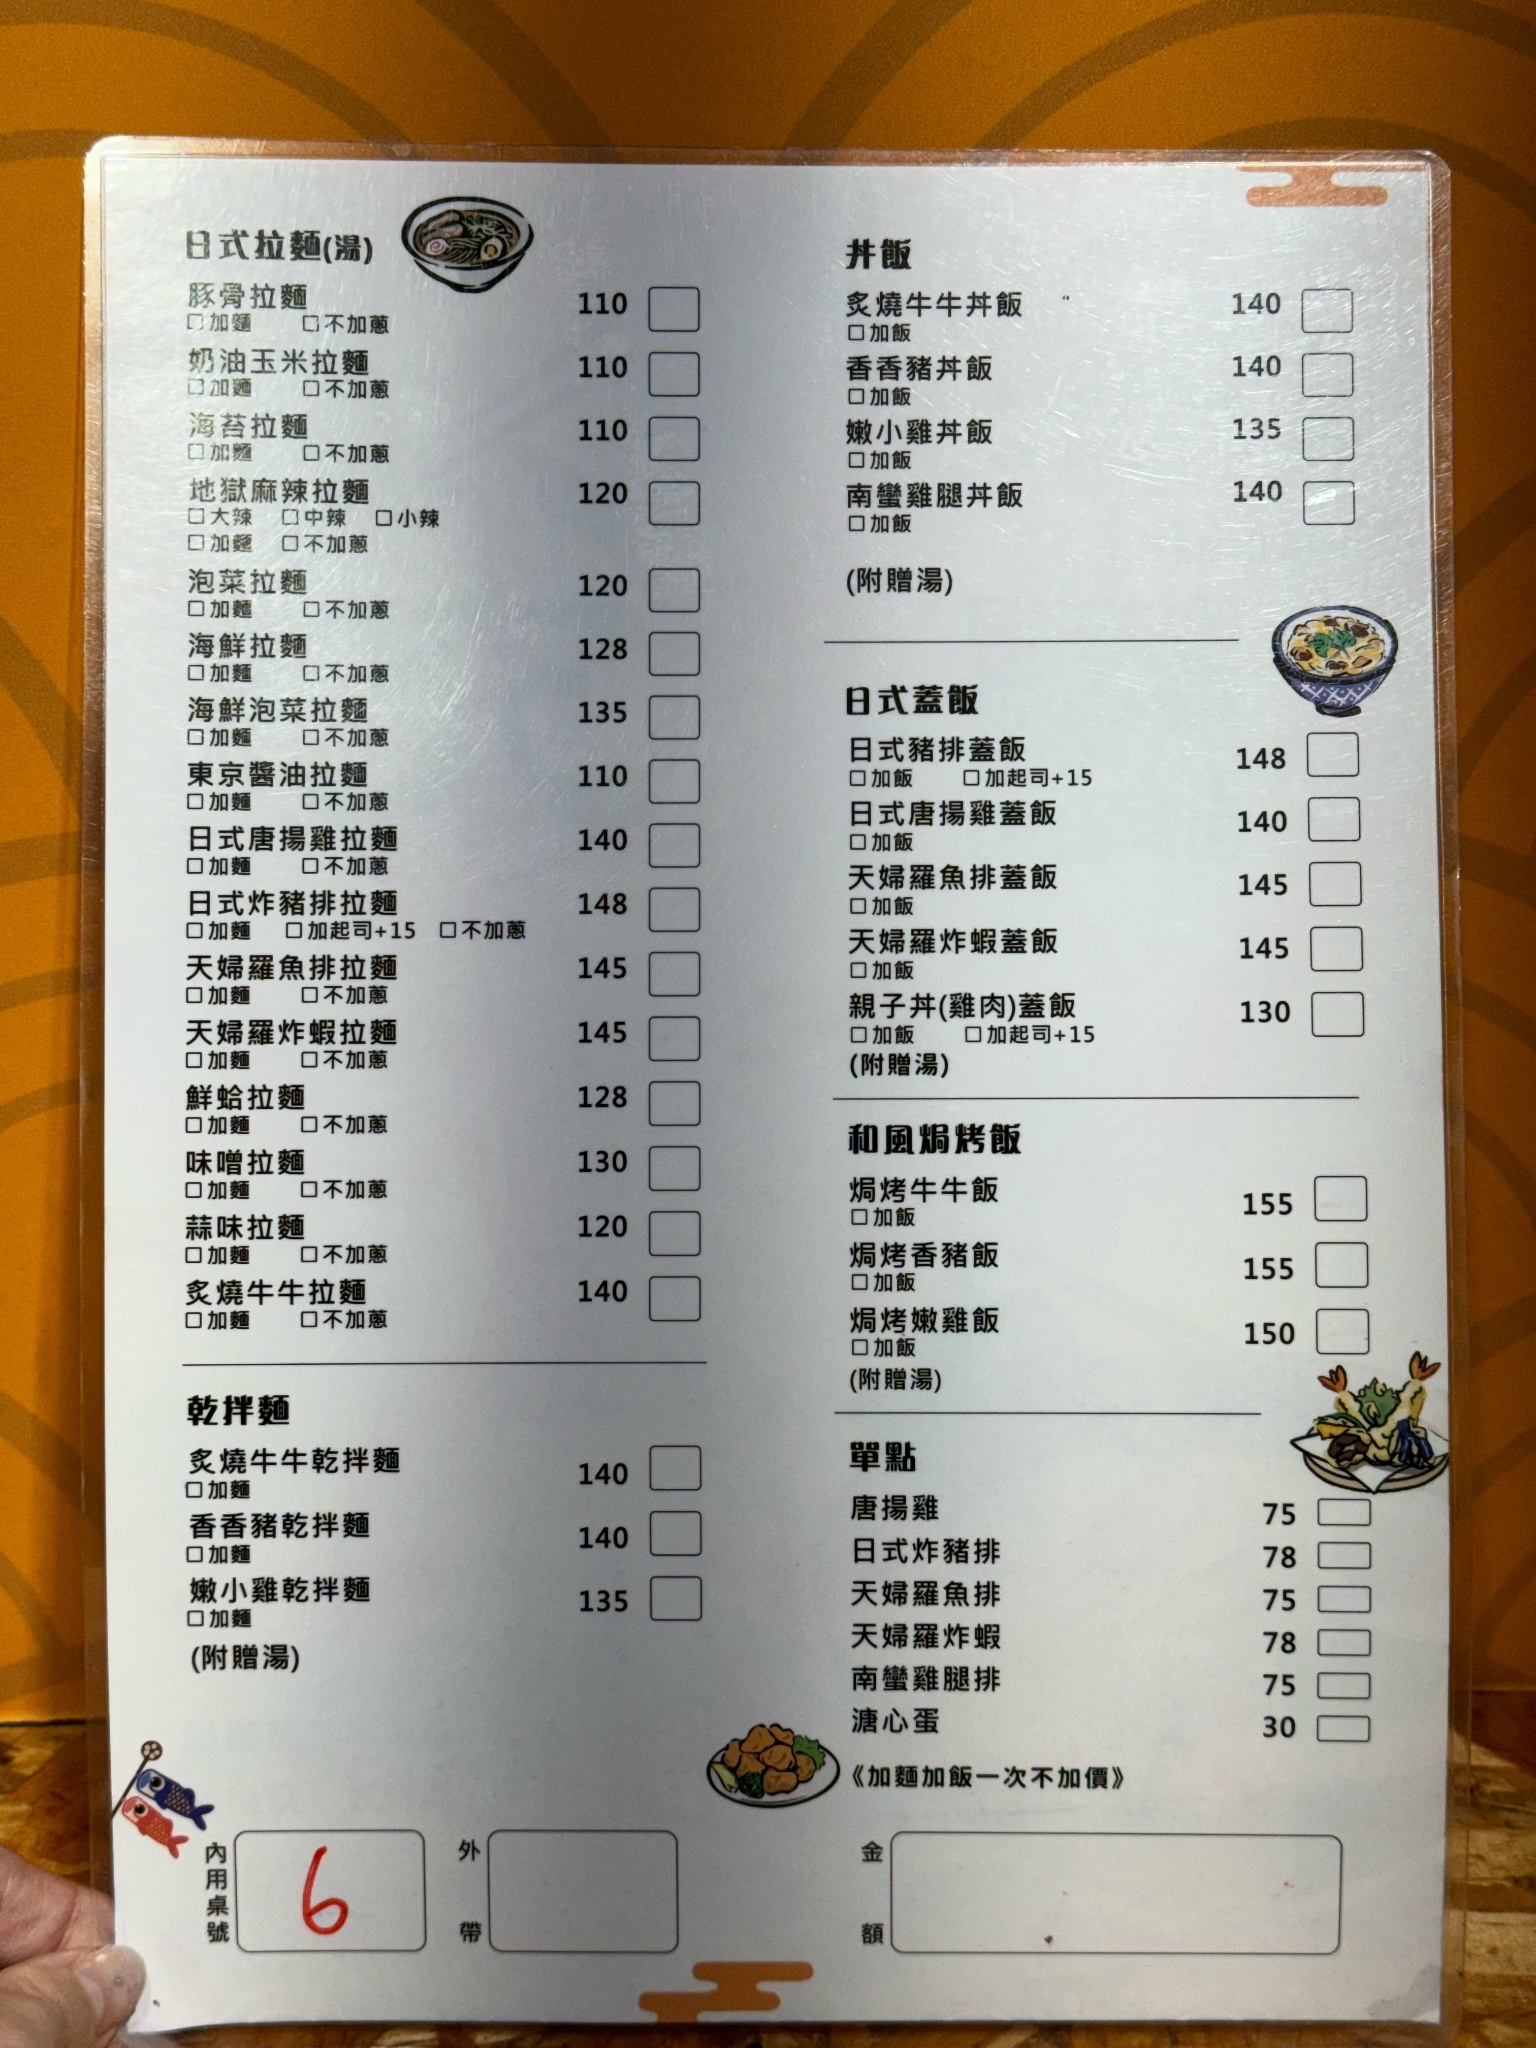 日式拉麵(湯)
豚骨拉麵 110
□加麵 □不加蔥
奶油玉米拉麵 110
□加麵 □不加蔥
海苔拉麵 110
□加麵 □不加蔥
地獄麻辣拉麵 120
□大辣 □中辣 □小辣
□加麵 □不加蔥
泡菜拉麵 120
□加麵 □不加蔥
海鮮拉麵 128
□加麵 □不加蔥
海鮮泡菜拉麵 135
□加麵 □不加蔥
東京醬油拉麵 110
□加麵 □不加蔥
日式唐揚雞拉麵 140
□加麵 □不加蔥
日式炸豬排拉麵 148
□加麵 □加起司+15 □不加蔥
天婦羅魚排拉麵 145
□加麵 □不加蔥
天婦羅炸蝦拉麵 145
□加麵 □不加蔥
鮮蛤拉麵 128
□加麵 □不加蔥
味噌拉麵 130
□加麵 □不加蔥
蒜味拉麵 120
□加麵 □不加蔥
炙燒牛牛拉麵 140
□加麵 □不加蔥
乾拌麵
炙燒牛牛乾拌麵 140
□加麵
香香豬乾拌麵 140
□加麵
嫩小雞乾拌麵 135
□加麵
(附贈湯)
丼飯
炙燒牛牛丼飯 140
□加飯
香香豬丼飯 140
□加飯
嫩小雞丼飯 135
□加飯
南蠻雞腿丼飯 140
□加飯
(附贈湯)
日式蓋飯
日式豬排蓋飯 148
□加飯 □加起司+15
日式唐揚雞蓋飯 140
□加飯
天婦羅魚排蓋飯 145
□加飯
天婦羅炸蝦蓋飯 145
□加飯
親子丼(雞肉)蓋飯 130
□加飯 □加起司+15
(附贈湯)
和風焗烤飯
焗烤牛牛飯 155
□加飯
焗烤香豬飯 155
□加飯
焗烤嫩雞飯 150
□加飯
(附贈湯)
單點
唐揚雞 75
日式炸豬排 78
天婦羅魚排 75
天婦羅炸蝦 78
南蠻雞腿排 75
溏心蛋 30
《加麵加飯一次不加價》
內用桌號 6
外帶
金額